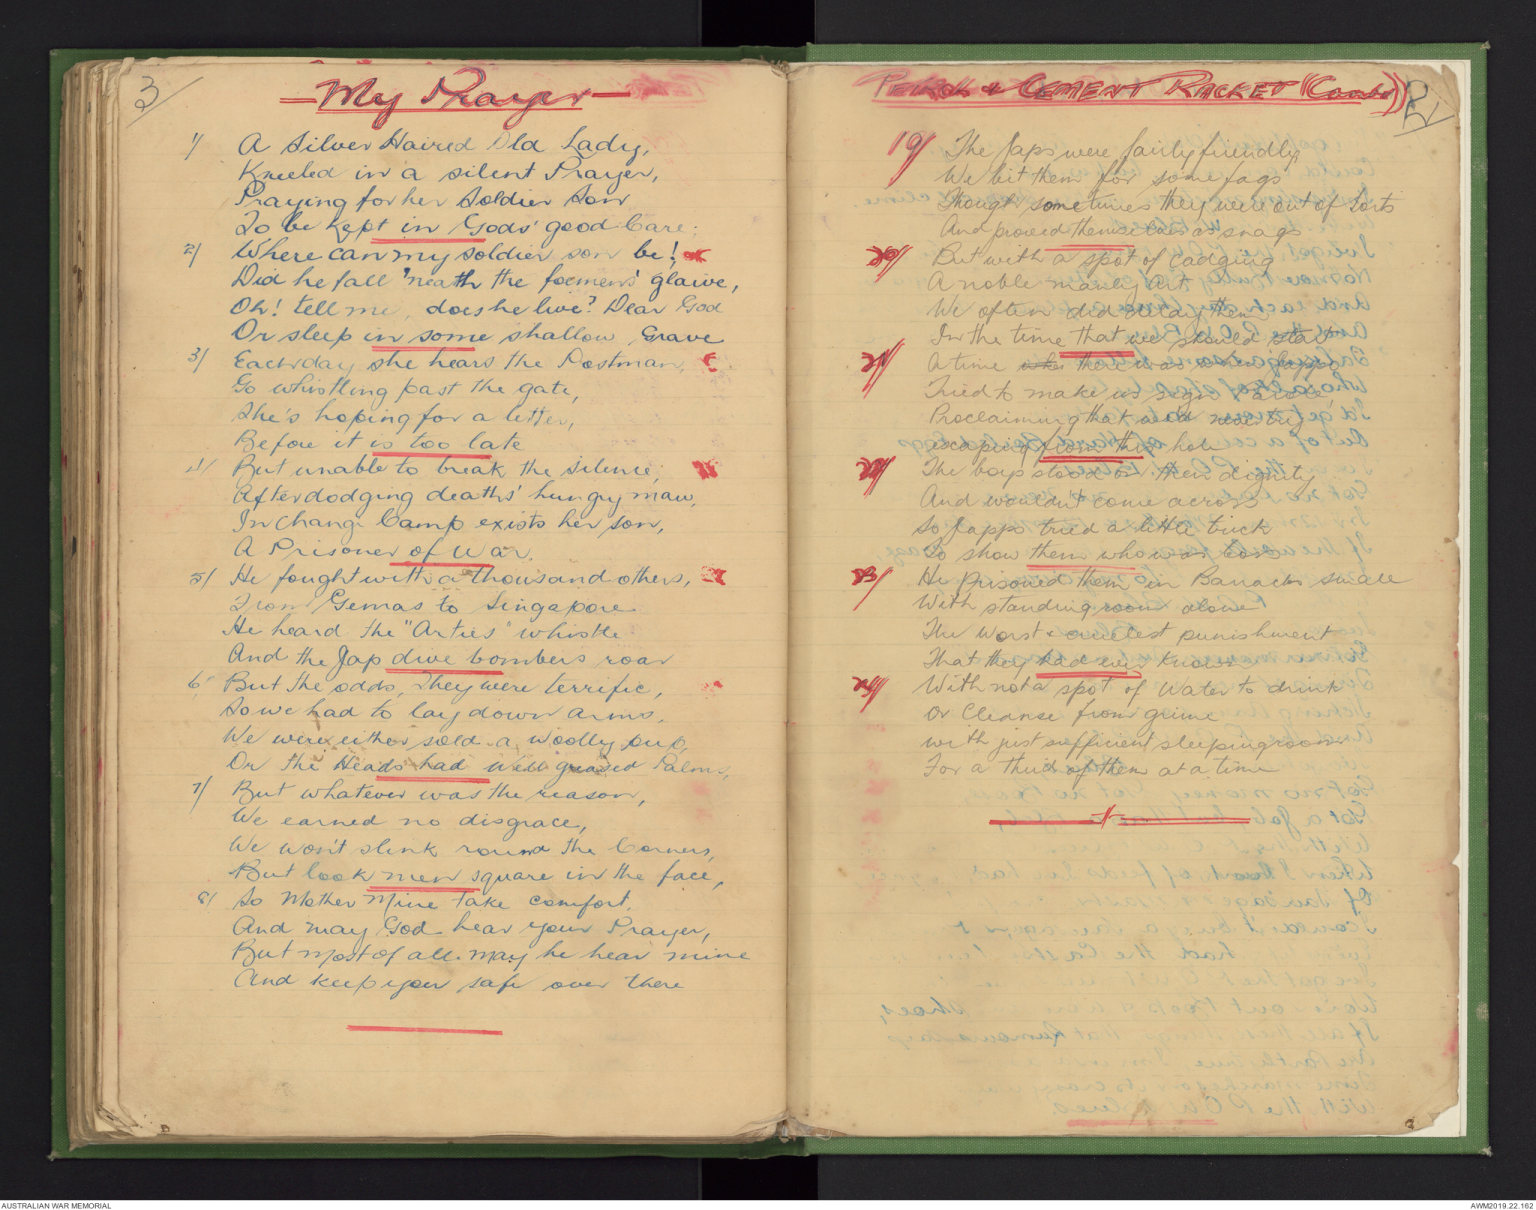 3
My Prayer
1/ A Silver Haired Old Lady,
Kneeled in a silent Prayer,
Praying for her Soldier Son
To be kept in Gods' good Care;
2/ Where can my soldier son be!
Did he fall 'neath the foemens' glaive,
Oh! tell me, does he live? Dear God
Or sleep in some shallow Grave
3/ Each day she hears the Postman,
Go whistling past the gate,
She's hoping for a letter,
Before it is too late
4/ But unable to break the silence,
After dodging deaths' hungry maw,
In Changi Camp exists her son,
A Prisoner of War.
5/ He fought with a thousand others,
From Gemas to Singapore
He heard the "Arties" whistle
And the Jap dive bombers roar
6 But the odds, They were terrific,
So we had to lay down arms,
We were either sold a woolly pup,
Or the Heads had well greased Palms,
7/ But whatever was the reason,
We earned no disgrace,
We won't slink round the Corners,
But look men square in the face,
8/ So Mother Mine take comfort,
And may God hear your Prayer,
But most of all may he hear mine
And keep you safe over there
Petrol & Cement Racket (Contd)
19/ The Japs were fairly friendly,
We bit them for some fags
Though sometimes they were out of sorts
And proved themselves as snags
20/ But with a spot of cadging
A noble manly art
We often did delay them
In the time that we should start
21/ A time when there was when Japps
Tried to make us sign a
Proclaiming that we'd never try
escaping from this hole
22/ The boys stood on their dignity
And wouldn't come across
So Japps tried a little trick
To show them who was boss
23/ He prisoned them in Barracks small
With standing room alone
The Worst & cruelest punishment
That they had ever known
24/ With not a spot of Water to drink
Or Cleanse from grime
with just sufficient sleeping room
For a third of them at a time
AUSTRALIAN WAR MEMORIAL
AWM2019.22.162